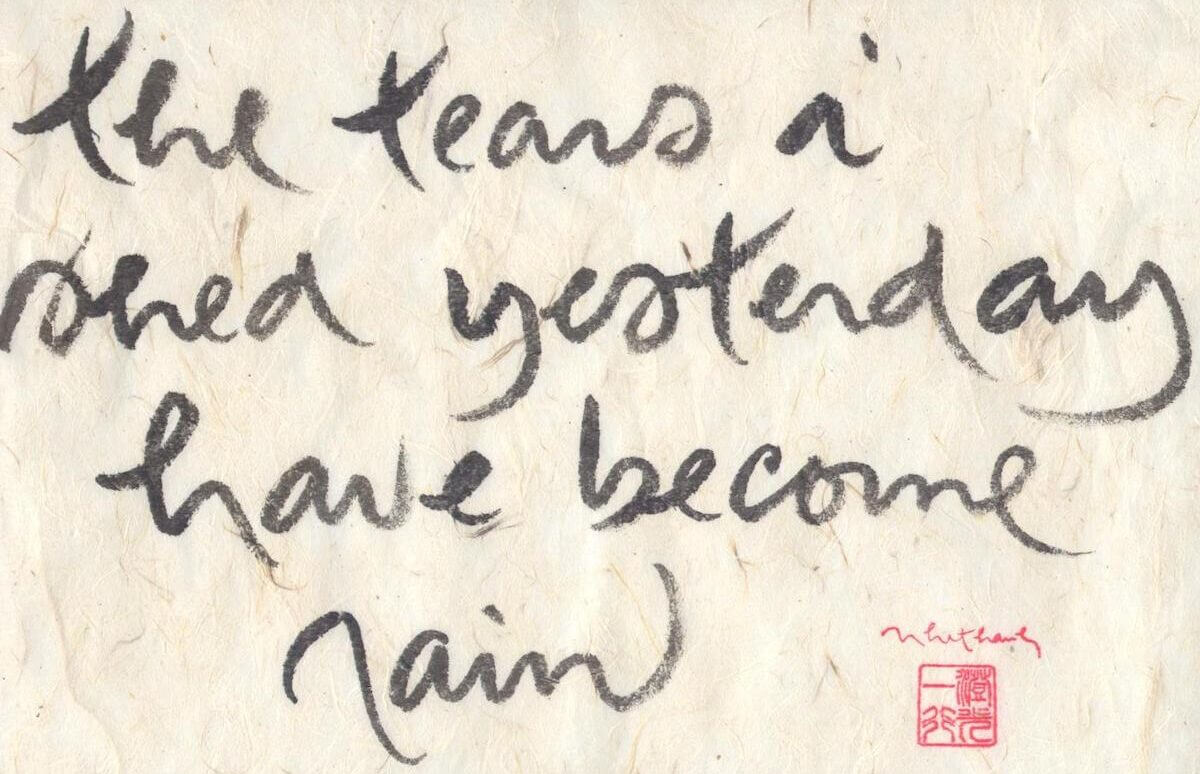 the tears i
shed yesterday
have become
rain
nhat hanh
澄光
一行